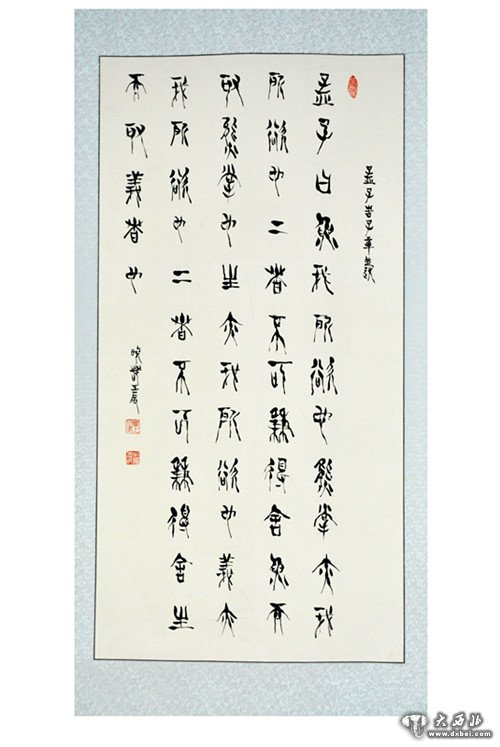 孟子告子章
孟子曰魚我所欲也熊掌亦我
所欲也二者不可兼得舍魚而
取熊掌也生亦我所欲也義亦
我所欲也二者不可兼得舍生
而取義者也
大西北
www.dxbei.com